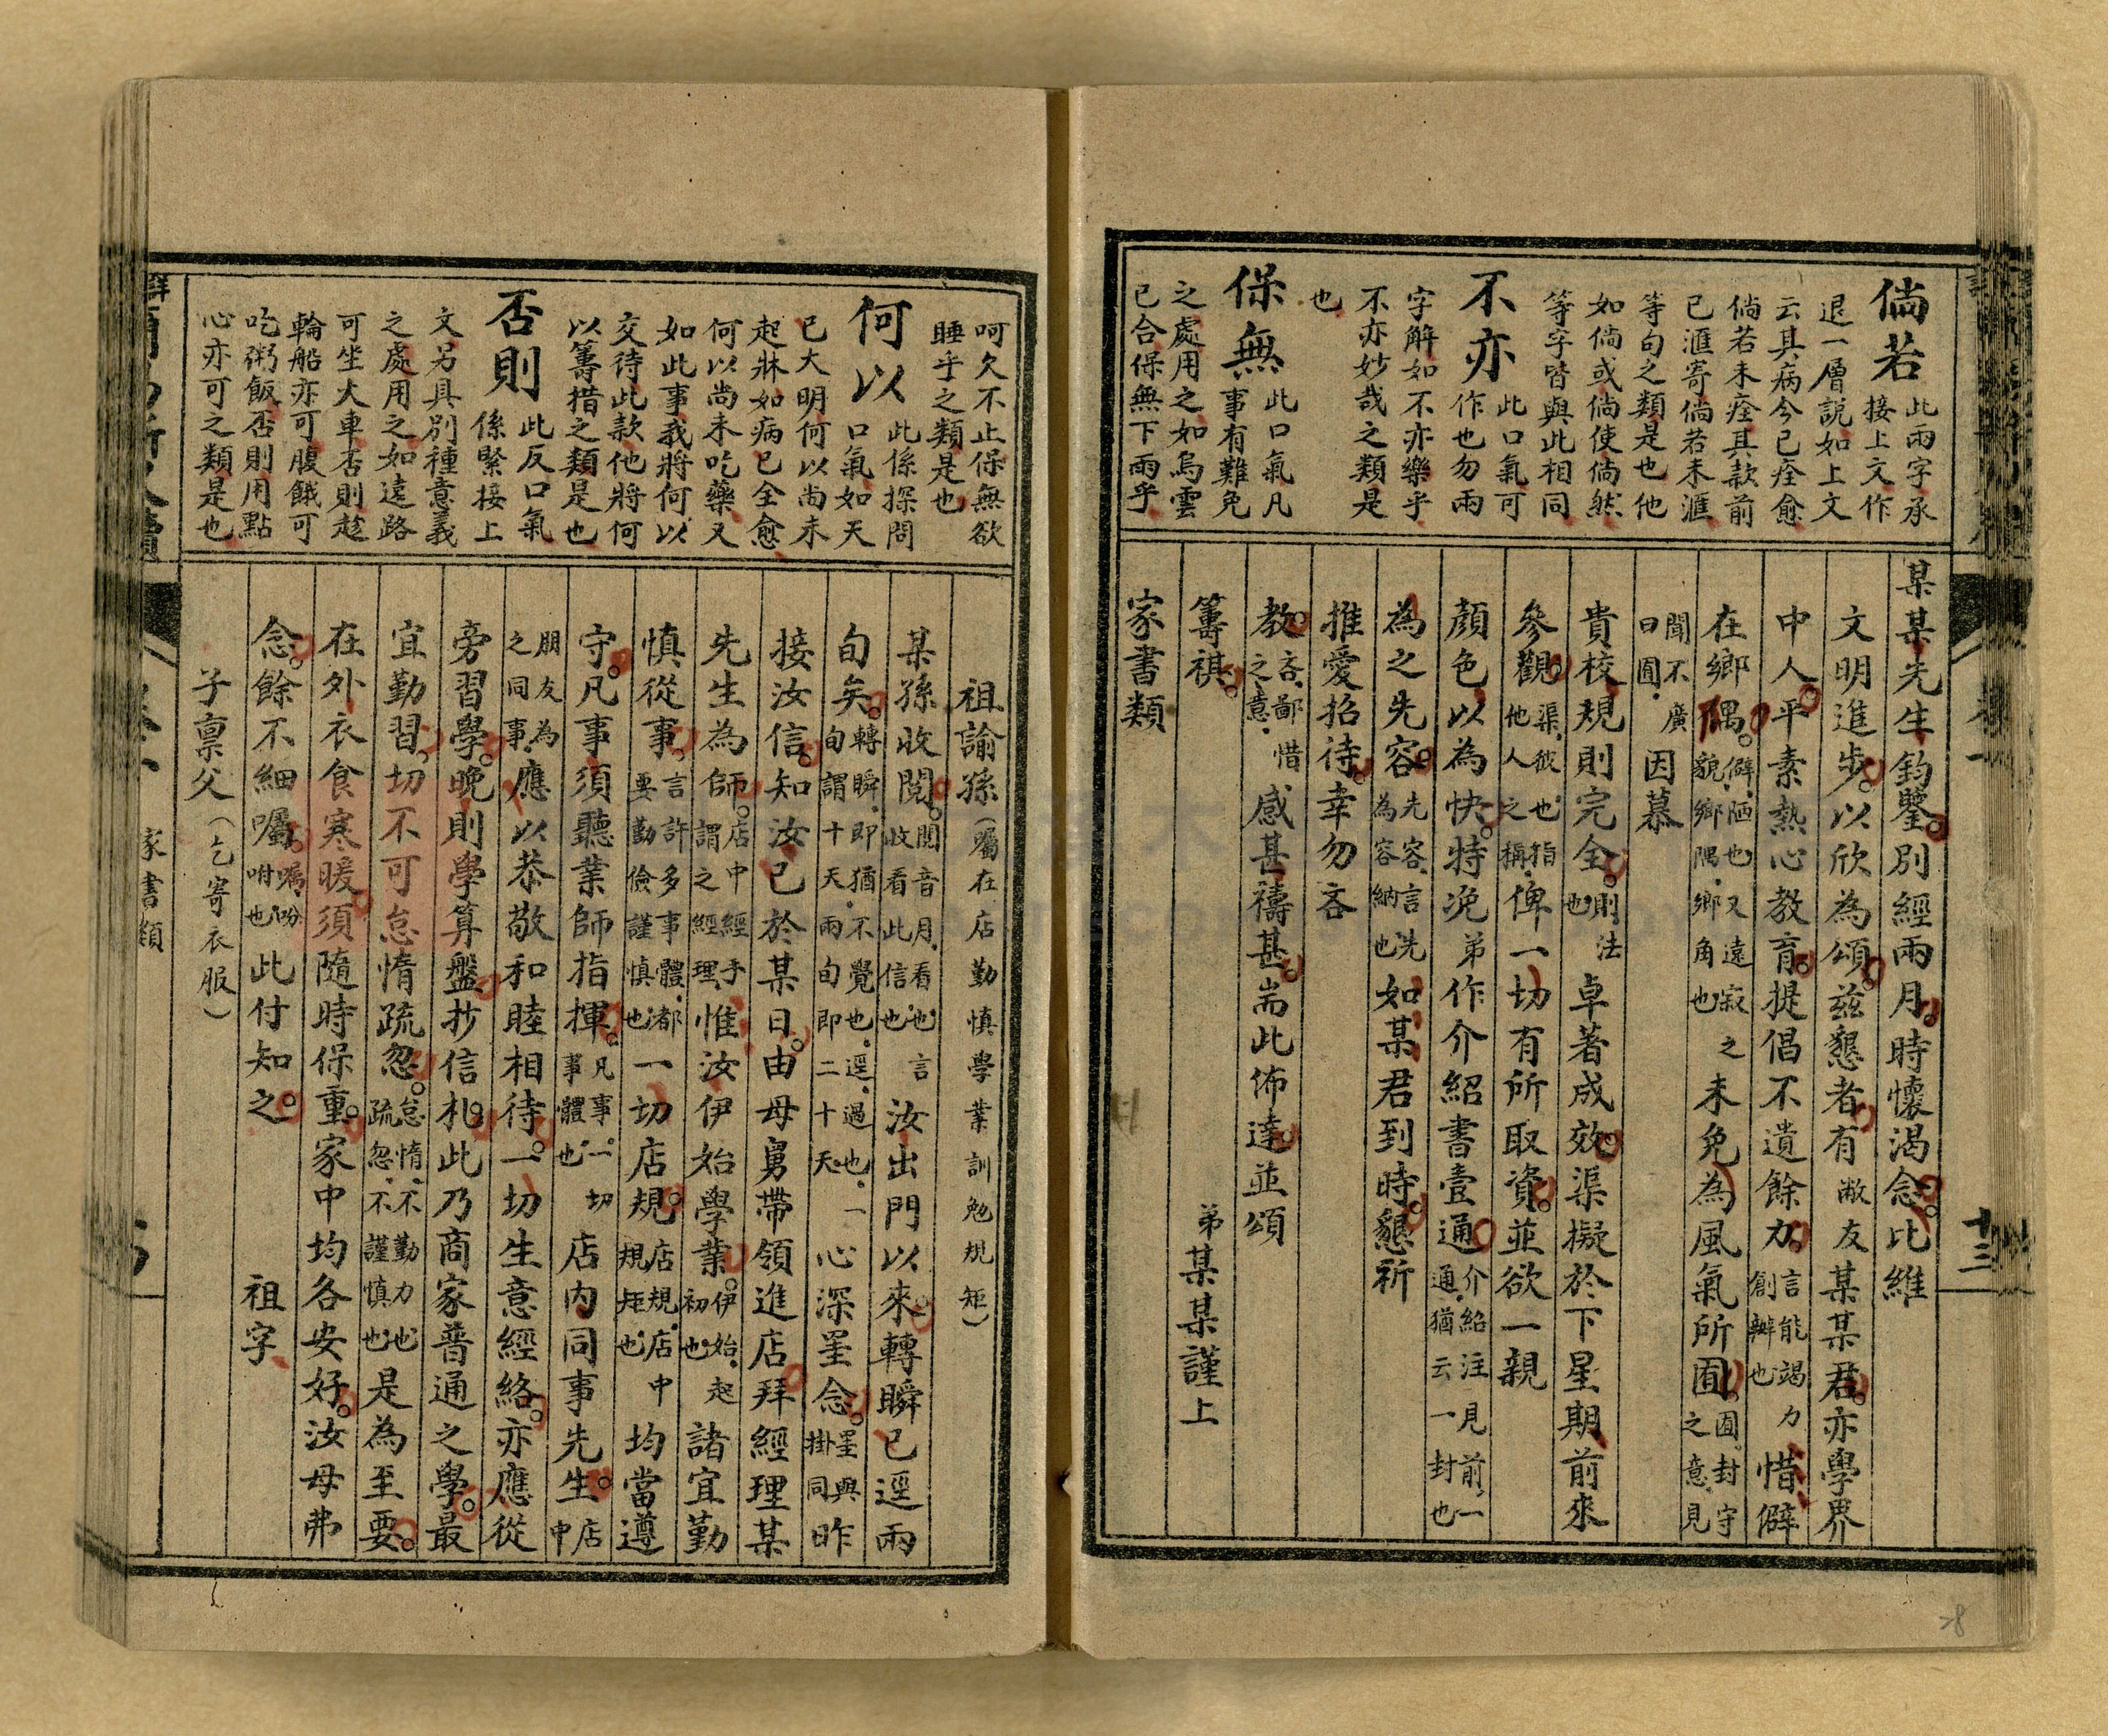 倘若
此兩字承
接上文作
退一層説如上文
云其病今已痊愈
倘若未痊其款前
已滙寄倘若未滙
等句之類是也他
如倘或倘使倘然
等字皆與此相同
不亦
此口氣可
作也勿兩
字解如不亦樂乎
不亦妙哉之類是
也
保無
此口氣凡
事有難免
之處用之如烏雲
已合保無下雨乎
某某先生鈞鑒別經兩月時懷渴念比維
文明進步以欣為頌茲懇者有敝友某某君亦學界
中人平素熱心教育提倡不遺餘力言能竭力創辦也惜僻
在鄉隅僻陋也又遠寂之貌鄉隅鄉角也未免為風氣所囿囿封守之意見
聞不廣曰囿因慕
貴校規則完全則法也卓著成效渠擬於下星期前來
參觀渠彼也指他人之稱俾一切有所取資並欲一親
顏色以為快特浼弟作介紹書壹通介紹注見前一通猶云一封也
為之先容先容言先為容納也如某君到時懇祈
推愛招待幸勿吝
教吝鄙惜之意感甚禱甚耑此佈達並頌
籌祺
弟某某謹上
家書類
十三
呵久不止保無欲
睡乎之類是也
何以
此係探問
口氣如天
已大明何以尚未
起牀如病已全愈
何以尚未吃藥又
如此事我將何以
交待此款他將何
以籌措之類是也
否則
此反口氣
係緊接上
文另具別種意義
之處用之如遠路
可坐大車否則趁
輪船亦可腹餓可
吃粥飯否則用點
心亦可之類是也
祖諭孫（屬在店勤慎學業訓勉規矩）
某孫收閱閱音月看也言收看此信也汝出門以來轉瞬已逕兩
旬矣轉瞬即猶不覺也逕過也一旬謂十天兩旬即二十天心深罣念罣與掛同昨
接汝信知汝已於某日由母舅帶領進店拜經理某
先生為師店中經手謂之經理惟汝伊始學業伊始起初也諸宜勤
慎從事言許多事體都要勤儉謹慎也一切店規店規店中規矩也均當遵
守凡事須聽業師指揮凡事一切事體也店內同事先生店中
朋友為之同事應以恭敬和睦相待一切生意經絡亦應從
旁習學晚則學算盤抄信札此乃商家普通之學最
宜勤習切不可怠惰疏忽怠惰不勤力也疏忽不謹慎也是為至要
在外衣食寒暖須隨時保重家中均各安好汝母弗
念餘不細囑囑吩咐也此付知之
祖字
子禀父（乞寄衣服）
家書類